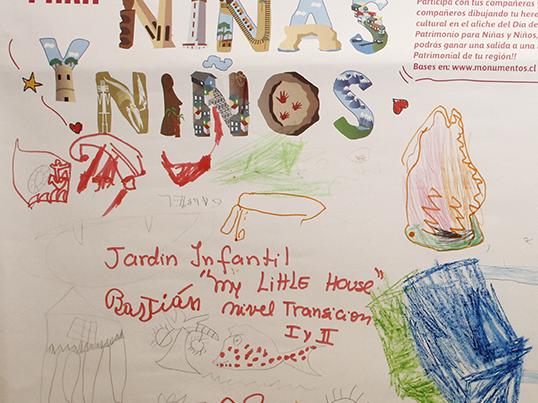 NIÑAS
Participa con tus compañeras
compañeros dibujando tu here
cultural en el afiche del Día de
Patrimonio para Niñas y Niños,
podrás ganar una salida a una
Patrimonial de tu región!!
Bases en: www.monumentos.cl
Y NIÑOS
Jardin Infantil
"My Little House"
Bastián nivel Transicion
I y II